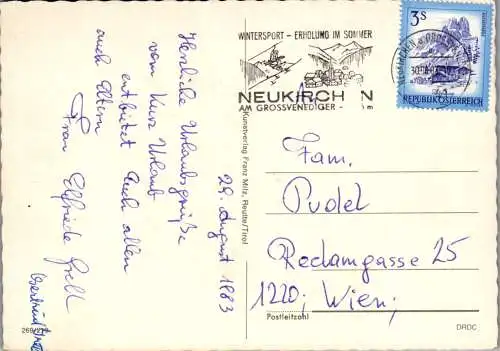 WINTERSPORT - ERHOLUNG IM SOMMER
NEUKIRCH N
AM GROSSVENEDIGER -
3S
REPUBLIK ÖSTERREICH
Herzliche Urlaubsgrüße
vom Kurz Urlaub
entbietet Euch allen
auch Eltern
Frau Elfriede
29. August 1983
Kunstverlag Franz Milz, Reutte/Tirol
Fam.
Pudel
Reclamgasse 25
1220, Wien,
Postleitzahl
DRDC